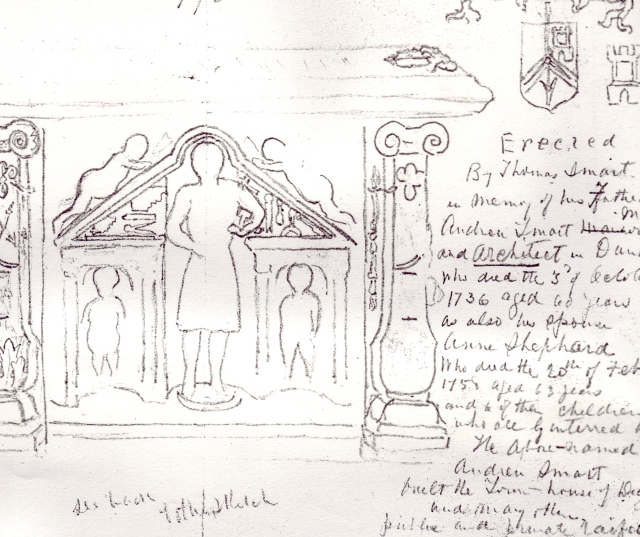 Erected
By Thomas Smart
in Memory of his Father
Andrew Smart
and Architect in
who died the 3d of
1736 aged 60 years
as also his spouse
Anne Shephard
Who died the 20th of Feb
aged 63 years
and 6 of their children
who are interred
The Above-named
Andrew Smart
built the Town-house of
and many other
and private
See back of this sketch